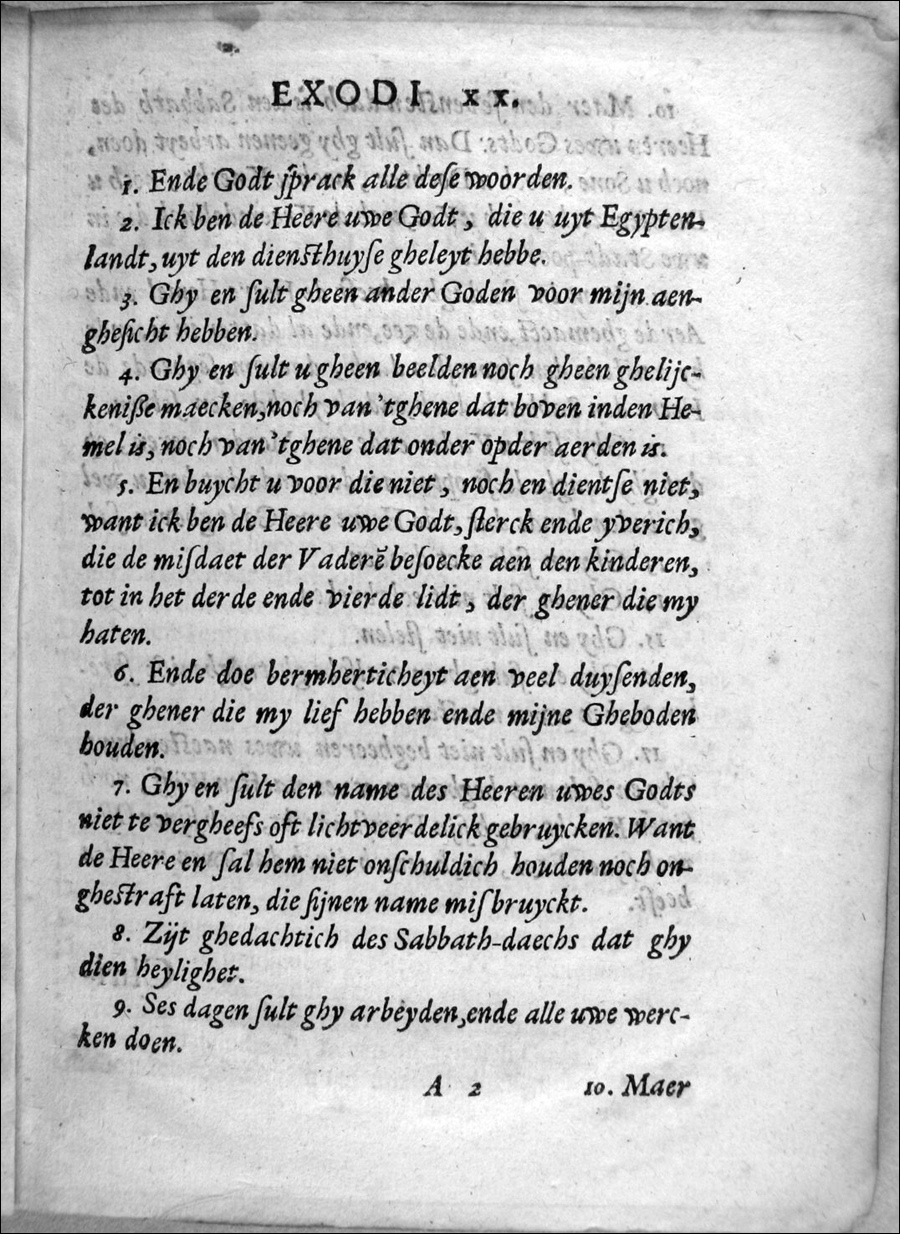 EXODI xx.
1. Ende Godt ſprack alle deſe woorden.
2. Ick ben de Heere uwe Godt, die u uyt Egypten-
landt, uyt den dienſthuyſe gheleyt hebbe.
3. Ghy en ſult gheen ander Goden voor mijn aen-
gheſicht hebben.
4. Ghy en ſult u gheen beelden noch gheen ghelijc-
keniße maecken, noch van 'tghene dat boven inden He-
mel is, noch van 'tghene dat onder opder aerden is.
5. En buycht u voor die niet, noch en dientſe niet,
want ick ben de Heere uwe Godt, ſterck ende yverich,
die de miſdaet der Vaderē beſoecke aen den kinderen,
tot in het derde ende vierde lidt, der ghener die my
haten.
6. Ende doe bermherticheyt aen veel duyſenden,
der ghener die my lief hebben ende mijne Gheboden
houden.
7. Ghy en ſult den name des Heeren uwes Godts
niet te vergheefs oft lichtveerdelick gebruycken. Want
de Heere en ſal hem niet onſchuldich houden noch on-
gheſtraft laten, die ſijnen name miſbruyckt.
8. Zijt ghedachtich des Sabbath-daechs dat ghy
dien heylighet.
9. Ses dagen ſult ghy arbeyden, ende alle uwe werc-
ken doen.
A 2 10. Maer